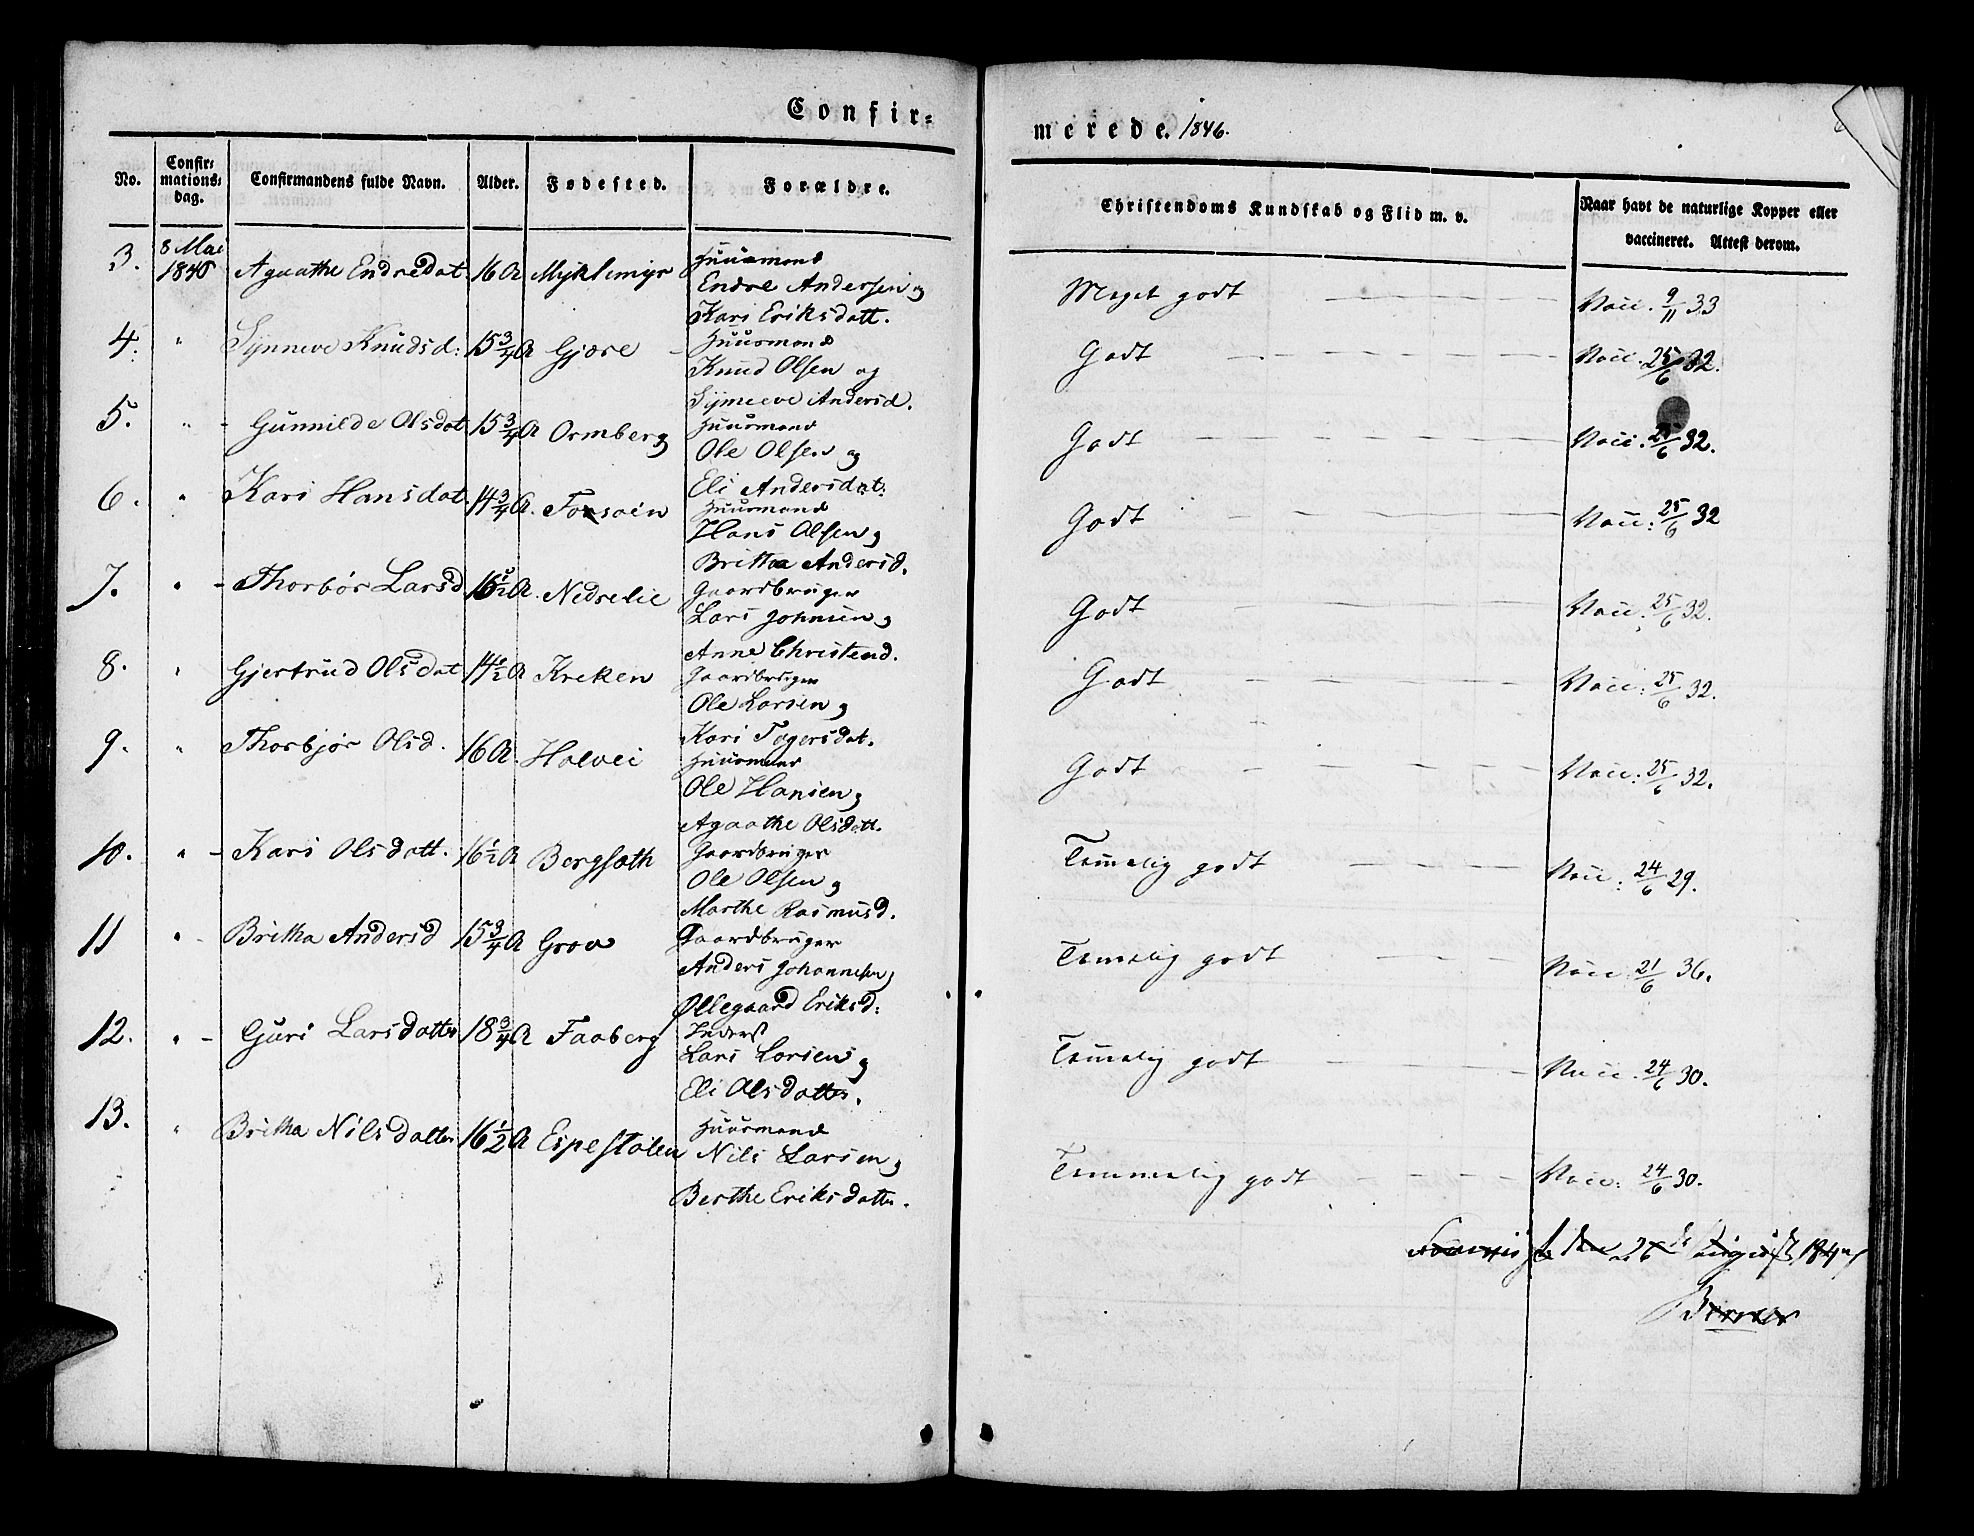 Confir=
merede. 1846.
No. Confir=mations=dag. Confirmandens fulde Navn. Alder. Fødested. Forældre. Christendoms Kundskab og Flid m. v. Naar havt de naturlige Kopper eller vaccineret. Attest derom.
3. 8 Mai 1846 Agaathe Endredat 16 A Myklemyr Huusmand
Endre Andersen og
Kari Eriksdatt. Meget godt Vacc. 9/11 33
4. " Synneve Knudsd: 15 3/4 A Gjøre Huusmand
Knud Olsen og
Synneve Andersd. Godt Vacc. 25/6 32.
5. " Gunnilde Olsdat 15 3/4 A Ormberg Huusmand
Ole Olsen og
Eli Andersdat: Godt Vacc. 25/6 32.
6. " Kari Hansdat. 14 3/4 A. Huusmand
Hans Olsen og
Brittaa Andersd. Godt Vacc: 25/6 32
7. " Thorbør Larsd 16 1/2 A. Nedrelie Gaardbruger
Lars Johnsen og
Anne Christend. Godt Vacc: 25/6 32.
8. " Gjertrud Olsdat 14 1/2 A Kreken Gaardbruger
Ole Larsen og
Kari Togersdat. Godt Vacc: 25/6 32.
9. " Thorbjør Olsd. 16 A. Halvei Huusmand
Ole Hansen og
Agaathe Olsdatt. Godt Vacc: 25/6 32.
10. " Kari Olsdatt. 16 1/2 A Bergsæth Gaardbruger
Ole Olsen og
Marthe Rasmusd. Temelig godt Vacc: 24/6 29.
11 " Britha Andersd 15 3/4 A Grov Gaardbruger
Anders Johannesen og
Ollegaard Eriksd: Temelig godt Vacc 21/6 36.
12. " Guri Larsdatter 18 3/4 A Faaberg Inderst
Lars Larsen og
Eli Olsdatter. Temelig godt Vacc. 24/6 30.
13. " Britha Nilsdatter 16 1/2 A Espestølen Huusmand
Nils Larsen og
Berthe Eriksdatter. Temmelig godt Vacc: 24/6 30.
den 26 August